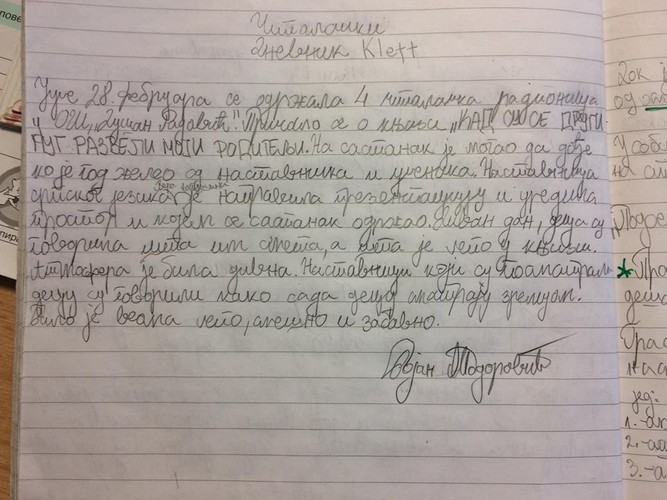 Читалачки
дневник Klett
Јуче 28. фебруара се одржала 4 читалачка радионица
у ОШ „Душан Радовић". Причало се о књизи „КАД СУ СЕ ДРУГИ
ПУТ РАЗВЕЛИ МОЈИ РОДИТЕЉИ. На састанак је могао да дође
ко је год желео од наставника и ученика. Наставница
српског језика је направила презентацију и уредила
простор у којем се састанак одржао. Диван дан, деца су
говорила шта им смета, а шта је лепо у књизи.
Атмосфера је била дивна. Наставници који су посматрали
децу су говорили како сада децу сматрају зрелијом.
Било је веома лепо, смешно и забавно.
Бојан Тодоровић
Док ј
од
У соби
на
Подсе
* Про
деца
Орас
нас
јед:
1.
2.
3.